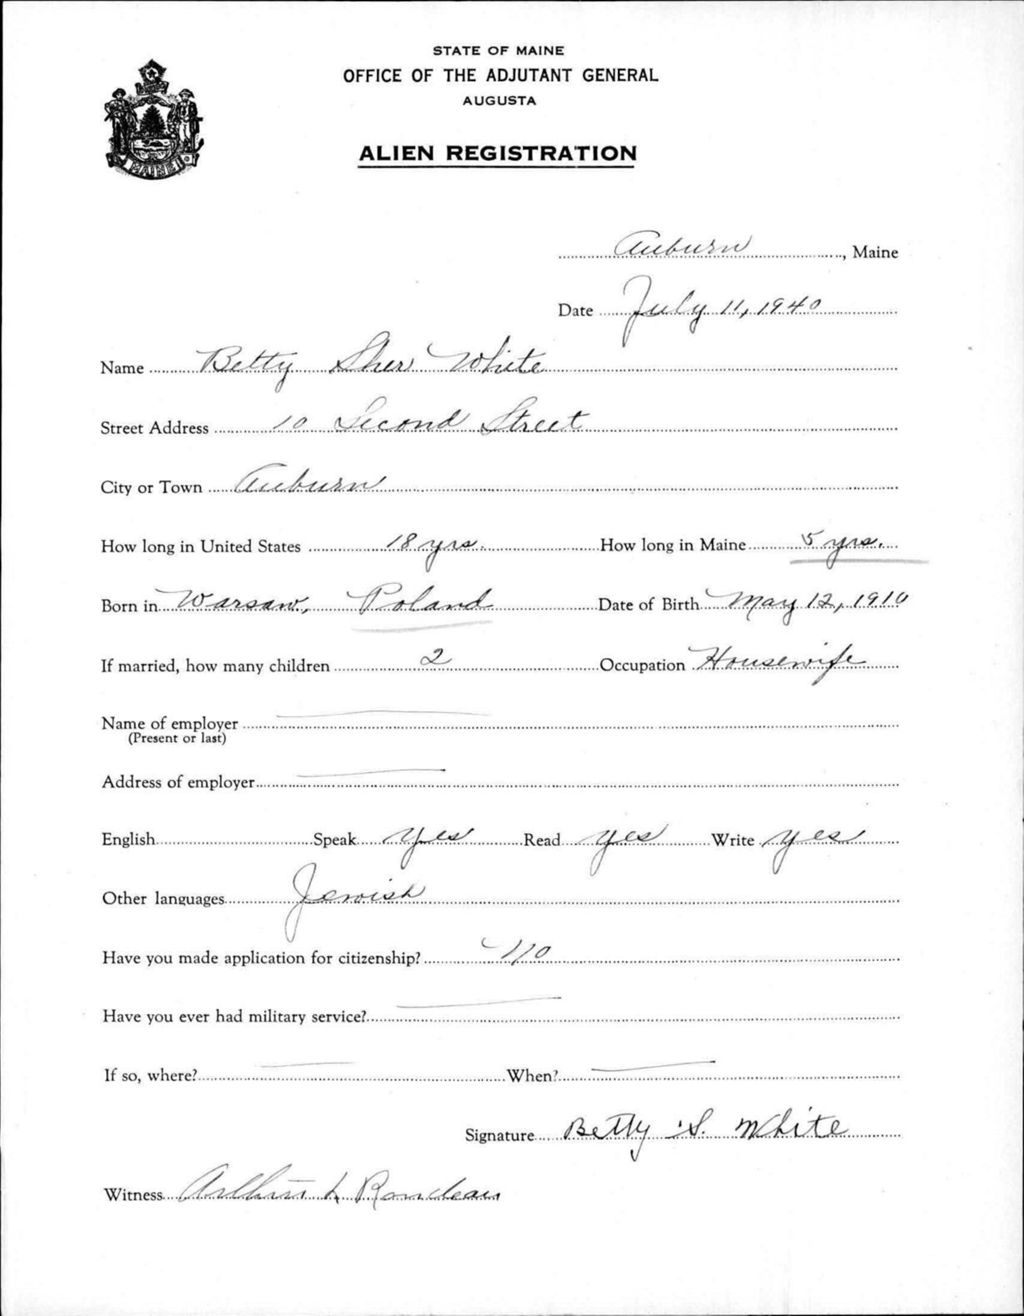 STATE OF MAINE
OFFICE OF THE ADJUTANT GENERAL
AUGUSTA
ALIEN REGISTRATION
MAINE
Auburn, Maine
Date July 11, 1940
Name Betty Sher White
Street Address 10 Second Street
City or Town Auburn
How long in United States 18 yrs. How long in Maine 5 yrs.
Born in Warsaw, Poland Date of Birth May 12, 1910
If married, how many children 2 Occupation Housewife
Name of employer
(Present or last)
Address of employer
English Speak yes Read yes Write yes
Other languages Jewish
Have you made application for citizenship? no
Have you ever had military service?
If so, where? When?
Signature Betty S. White
Witness Arthur L Rondeau